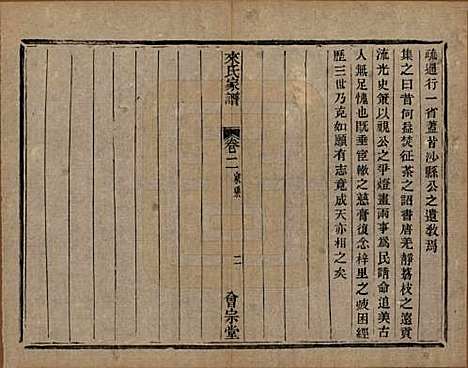 疏通行一省蓋昔沙縣公之遺教焉
集之曰昔何益焚征茶之詔書唐羌靜荔枝之遠貢
流光史策以視公之爭燈畫兩事為民請命追美古
人無足愧也既垂宦轍之慈膏復念梓里之疲困經
歷三世乃克如願有志竟成天亦相之矣
來氏家譜
卷二
二
會宗堂